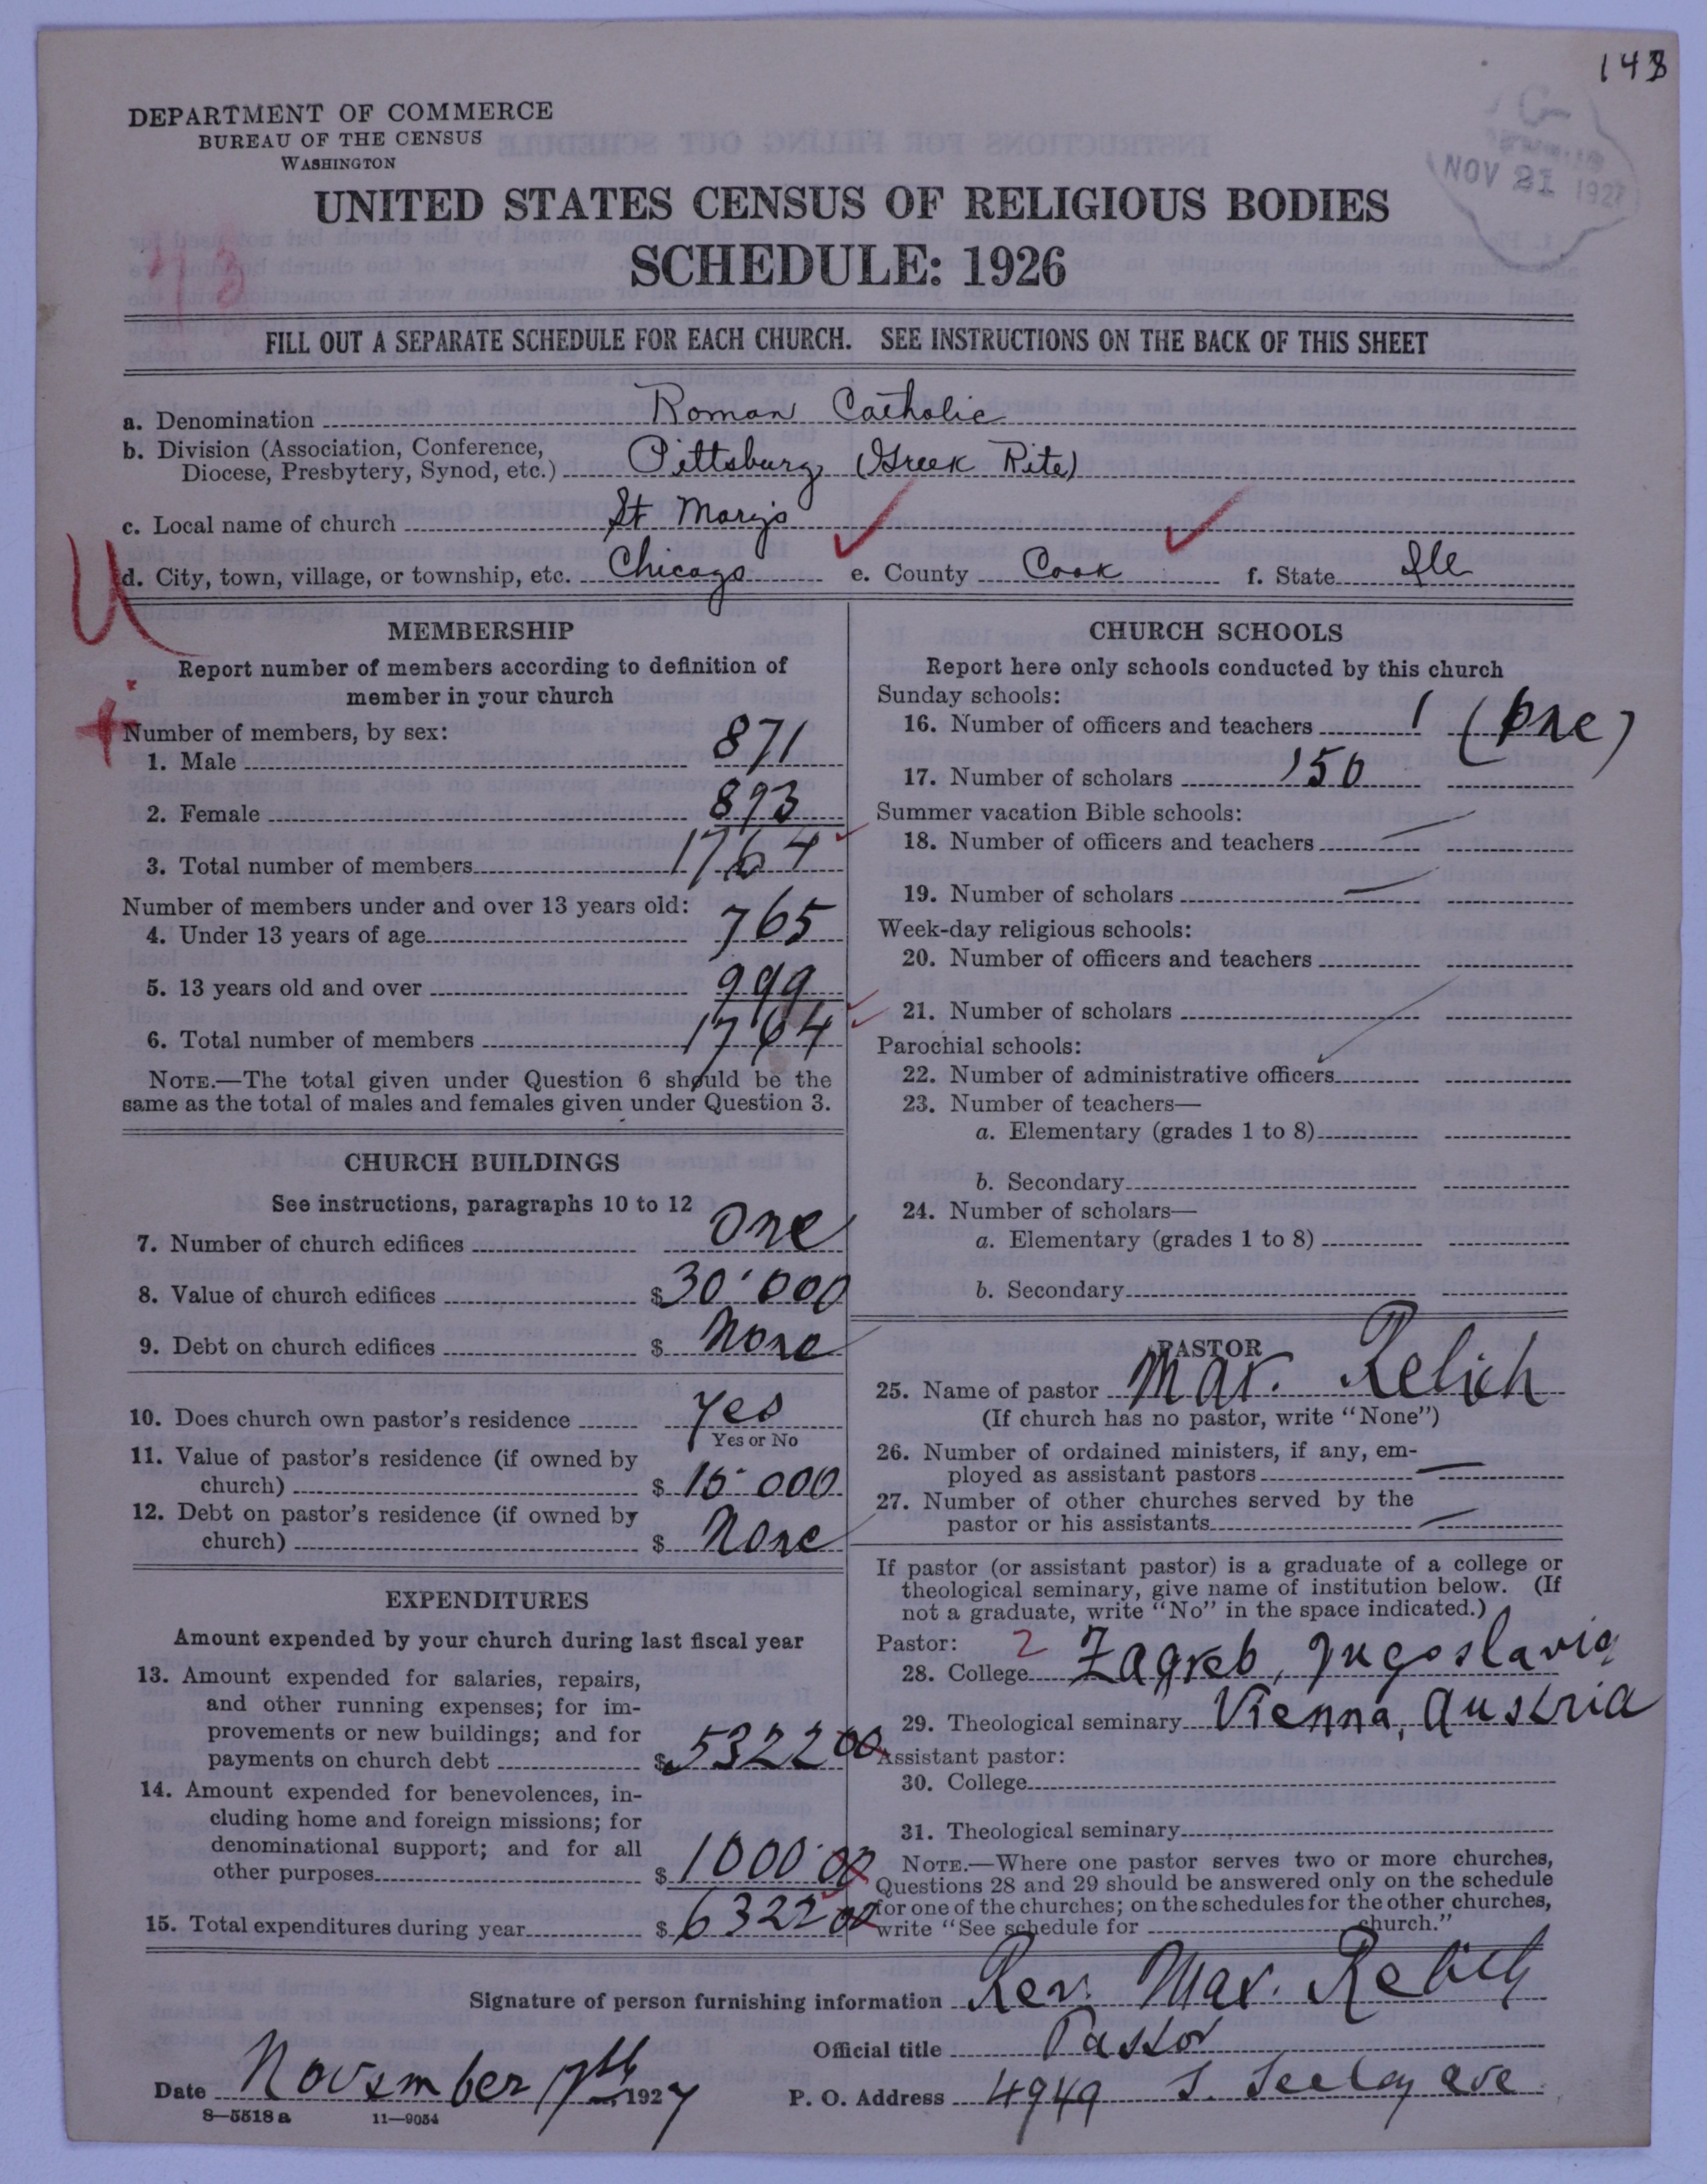 143
DEPARTMENT OF COMMERCE
BUREAU OF THE CENSUS
WASHINGTON
NOV 21 1927
UNITED STATES CENSUS OF RELIGIOUS BODIES
SCHEDULE: 1926
FILL OUT A SEPARATE SCHEDULE FOR EACH CHURCH. SEE INSTRUCTIONS ON THE BACK OF THIS SHEET
a. Denomination Roman Catholic
b. Division (Association, Conference,
Diocese, Presbytery, Synod, etc.) Pittsburg (Greek Rite)
c. Local name of church St Mary's
d. City, town, village, or township, etc. Chicago e. County Cook f. State Ill
MEMBERSHIP
Report number of members according to definition of
member in your church
Number of members, by sex:
1. Male 871
2. Female 893
3. Total number of members 1764
Number of members under and over 13 years old:
4. Under 13 years of age 765
5. 13 years old and over 999
6. Total number of members 1764
NOTE.—The total given under Question 6 should be the
same as the total of males and females given under Question 3.
CHURCH BUILDINGS
See instructions, paragraphs 10 to 12
7. Number of church edifices One
8. Value of church edifices $30'000
9. Debt on church edifices $ None
10. Does church own pastor's residence Yes
Yes or No
11. Value of pastor's residence (if owned by
church) $ 15'000
12. Debt on pastor's residence (if owned by
church) $ None
EXPENDITURES
Amount expended by your church during last fiscal year
13. Amount expended for salaries, repairs,
and other running expenses; for im-
provements or new buildings; and for
payments on church debt $5322 00
14. Amount expended for benevolences, in-
cluding home and foreign missions; for
denominational support; and for all
other purposes $1000'00
15. Total expenditures during year $6322 00
CHURCH SCHOOLS
Report here only schools conducted by this church
Sunday schools:
16. Number of officers and teachers 1 (One)
17. Number of scholars 150
Summer vacation Bible schools:
18. Number of officers and teachers —
19. Number of scholars —
Week-day religious schools:
20. Number of officers and teachers
21. Number of scholars
Parochial schools:
22. Number of administrative officers
23. Number of teachers—
a. Elementary (grades 1 to 8)
b. Secondary
24. Number of scholars—
a. Elementary (grades 1 to 8)
b. Secondary
PASTOR
25. Name of pastor Max. Relich
(If church has no pastor, write "None")
26. Number of ordained ministers, if any, em-
ployed as assistant pastors —
27. Number of other churches served by the
pastor or his assistants —
If pastor (or assistant pastor) is a graduate of a college or
theological seminary, give name of institution below. (If
not a graduate, write "No" in the space indicated.)
Pastor: 2
28. College Zagreb, Jugoslavia
29. Theological seminary Vienna, Austria
Assistant pastor:
30. College
31. Theological seminary
NOTE.—Where one pastor serves two or more churches,
Questions 28 and 29 should be answered only on the schedule
for one of the churches; on the schedules for the other churches,
write "See schedule for church."
Signature of person furnishing information Rev. Max. Relich
Official title Pastor
Date November 17th, 1927 P. O. Address 4949 S. Seeley ave
8—5518a 11—9054